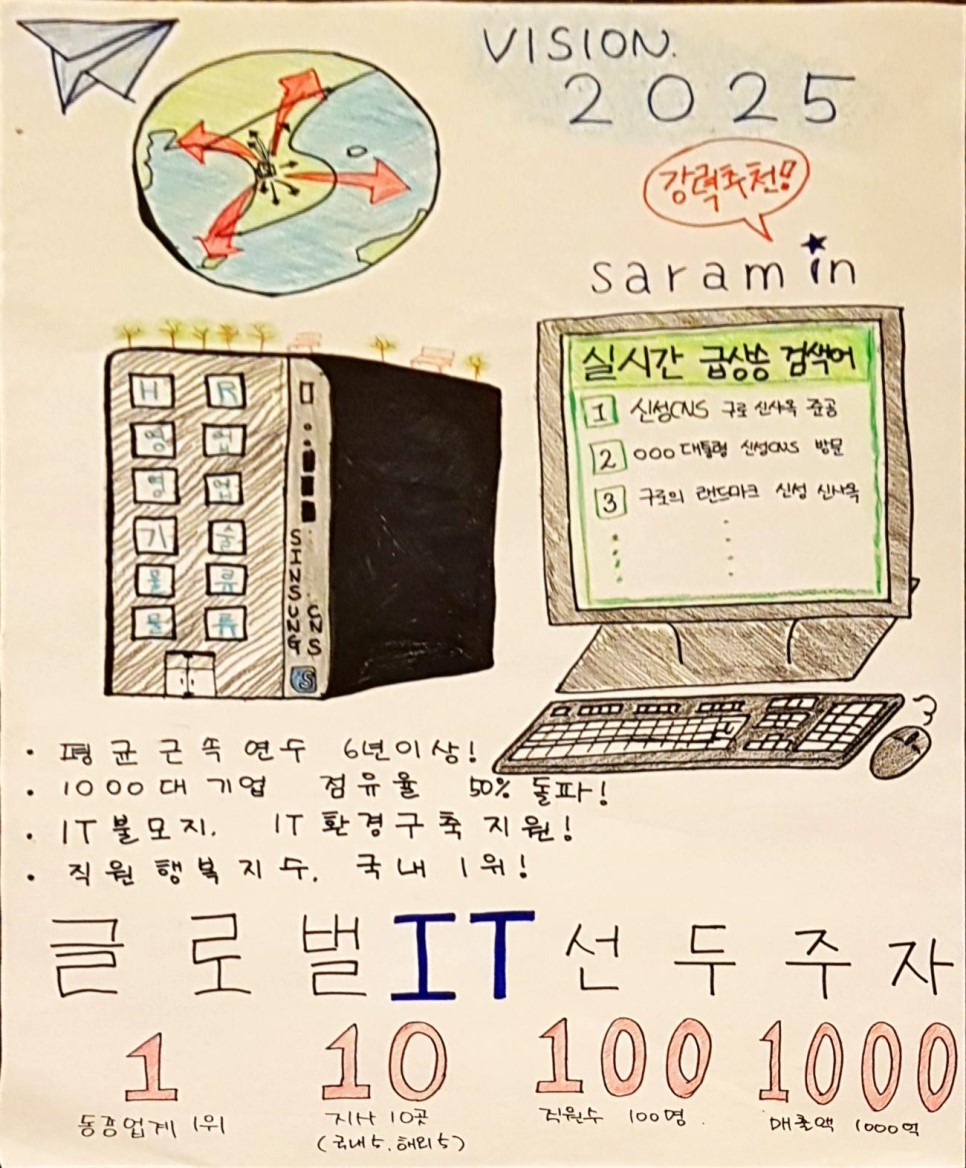 VISION.
2025
강력추천!!
saramin
실시간 급상승 검색어
1 신성CNS 구로 신사옥 준공
2 OOO 대통령 신성CNS 방문
3 구로의 랜드마크 신성 신사옥
H R
영 업
영 업
기 술
물 류
물 류
SINSUNG
CNS
S
· 평균 근속 연수 6년이상!
· 1000대 기업 점유율 50% 돌파!
· IT 불모지. IT 환경구축 지원!
· 직원 행복 지수. 국내 1위!
글로벌 IT 선두주자
1 10 100 1000
동종업계 1위
지사 10곳
(국내5, 해외5)
직원수 100명.
매출액 1000억